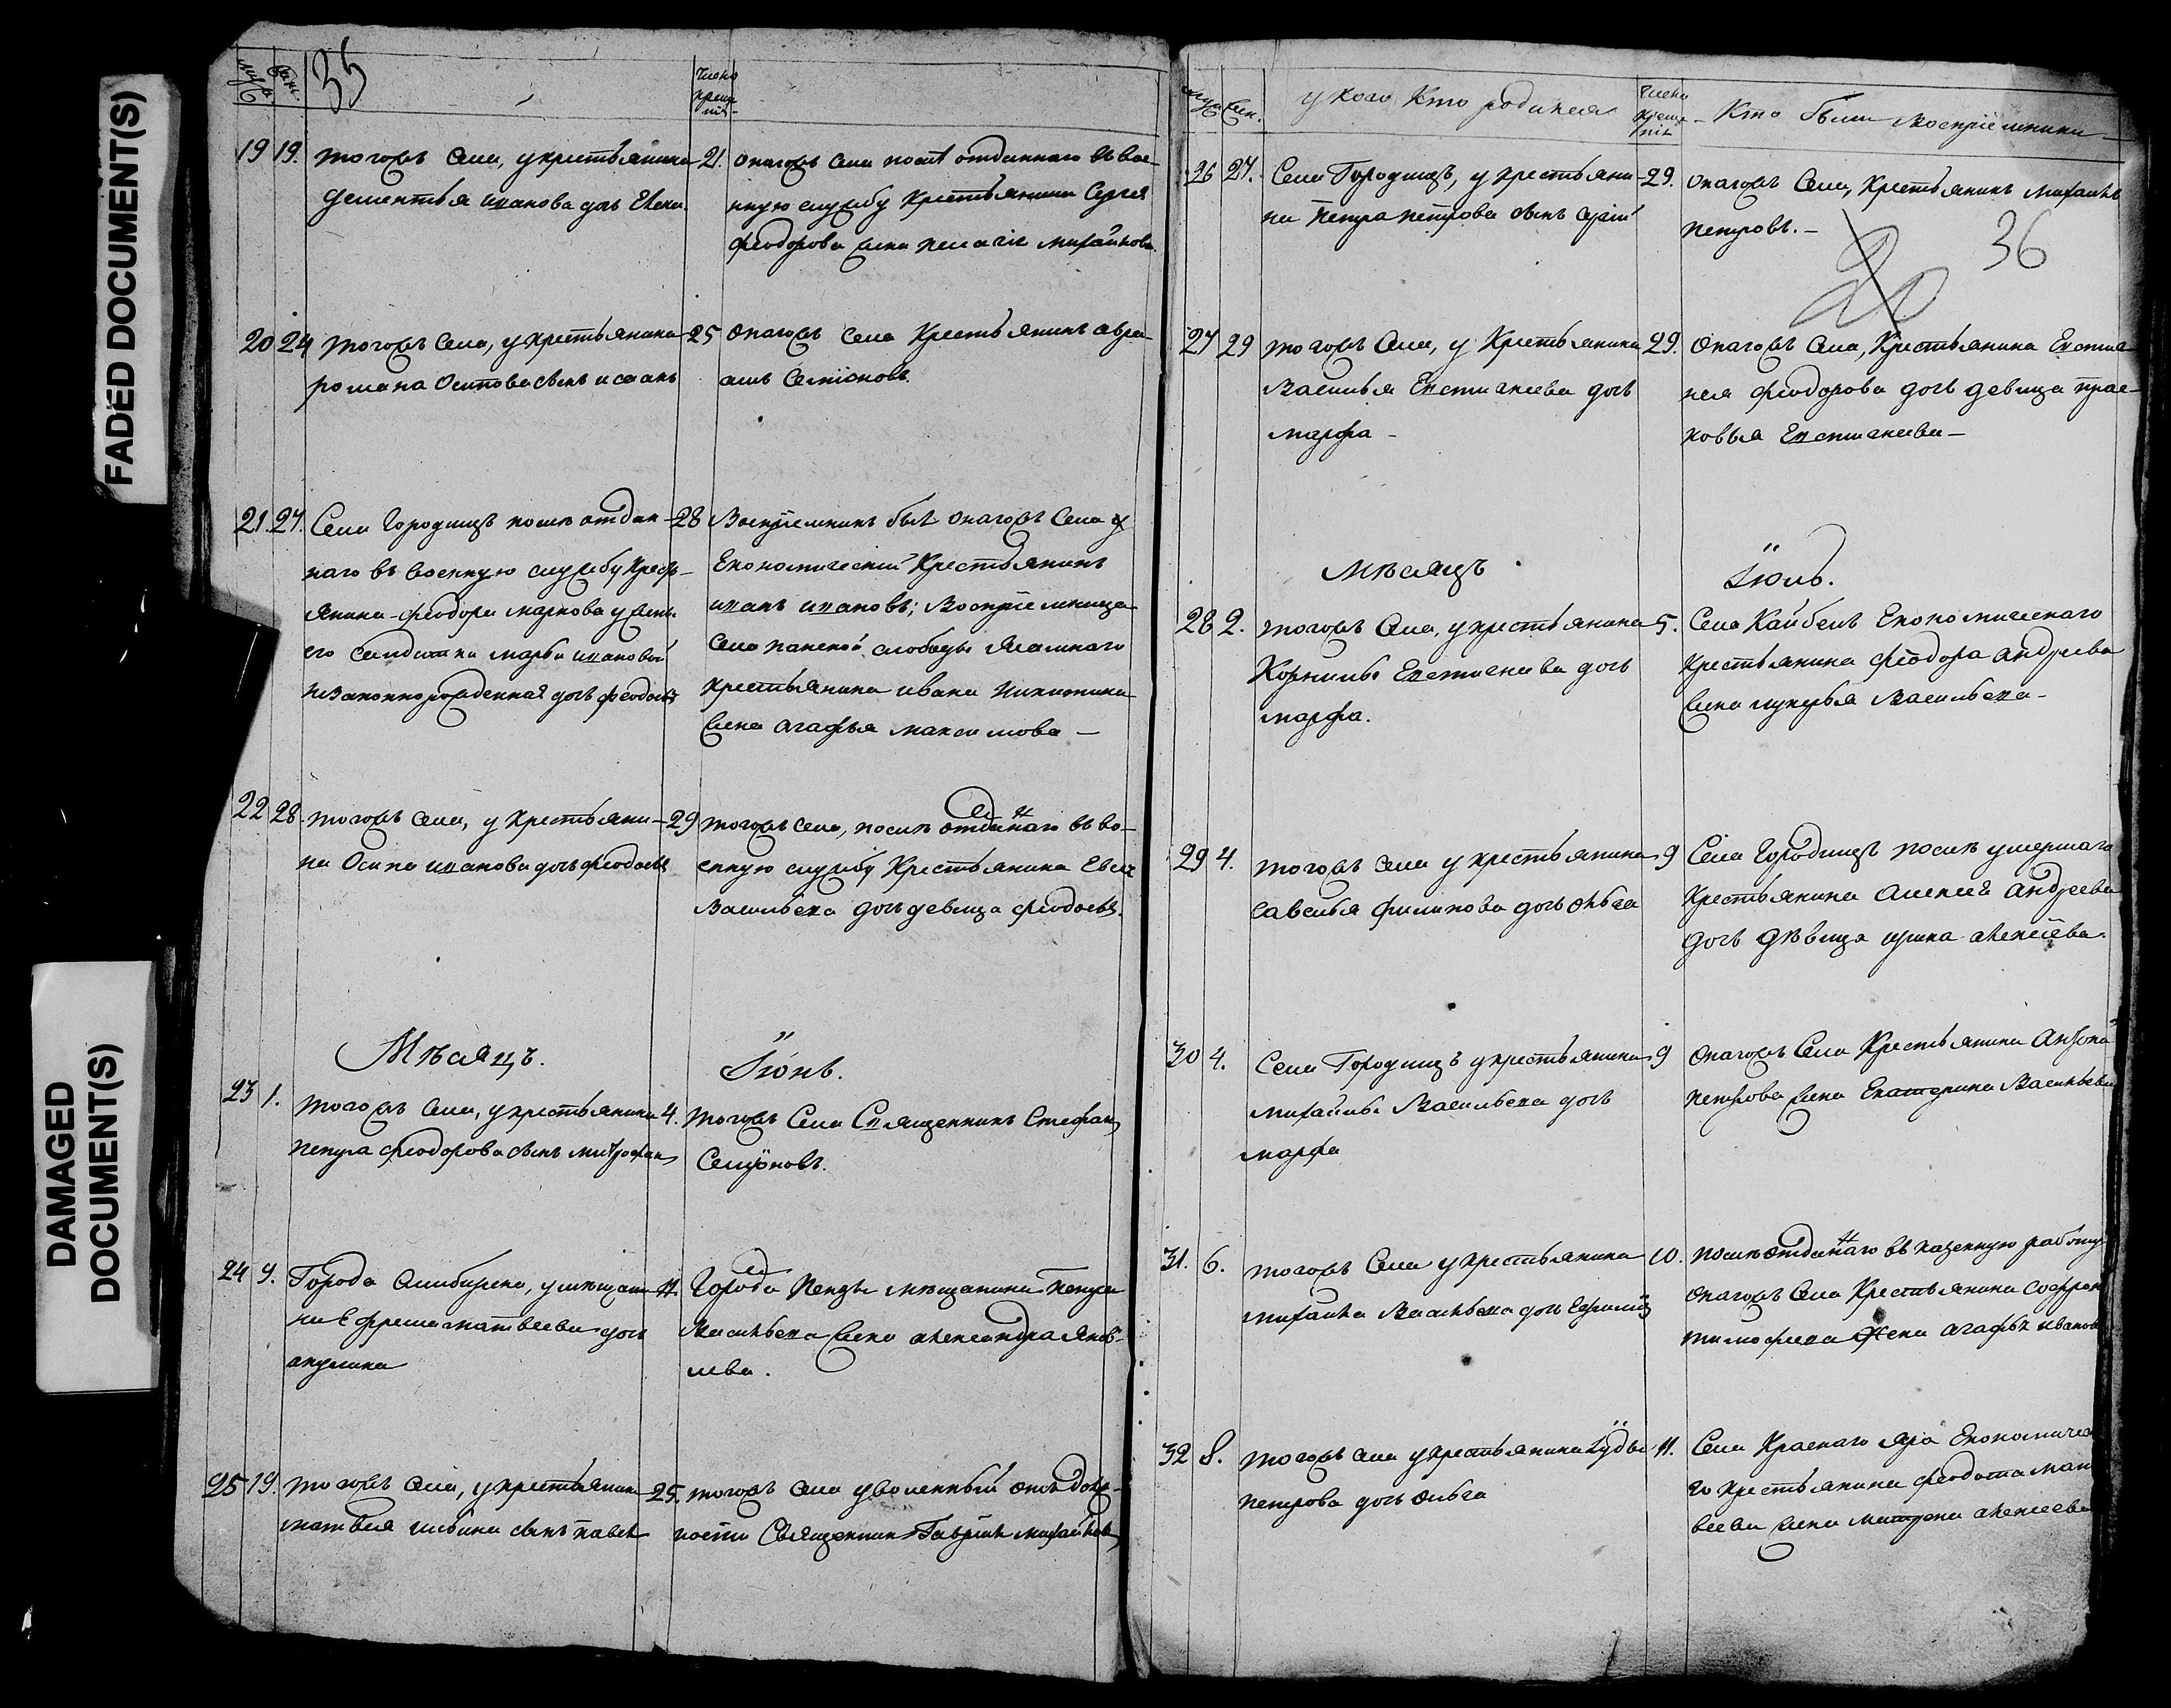 FADED DOCUMENT(S)
DAMAGED
DOCUMENT(S)
35
число
креще
нія
19 19. тогожъ села, у крестьянина
дементья иванова дочь Елена.
21. онагожъ села послѣ отданнаго въ вое-
нную службу крестьянина Сергея
феодорова жена пелагія михайлова.
20 24 тогожъ села, у крестьянина
романа Осипова сынъ исаакъ
25 онагожъ села крестьянинъ авра-
амъ Семіоновъ.
21. 27. Села Городищъ послѣ отдан-
наго въ военную службу крест-
янина феодора маркова у жены
его салдатки марьи ивановой
незаконнорожденная дочь феодосья
28 Воспріемникъ былъ онагожъ села
Економическій крестьянинъ
иванъ ивановъ; Воспріемница
села панской слободы ясашнаго
крестьянина ивана никитина
жена агафья максимова —
22 28. тогожъ села, у крестьяни-
на Осипа иванова дочь феодосья
29 тогожъ села, послѣ отданнаго въ во-
енную службу крестьянина Евсея
Васильева дочь девица феодосья.
Мѣсяцъ. Іюнь.
23 1. тогожъ села, у крестьянина
петра феодорова сынъ митрофанъ
4. тогожъ Села Священникъ Стефанъ
Семіоновъ.
24 9. Города Симбирска, у мещани-
на Ефрема матвеева дочь
акулина
11. Города Пензы мещанина петра
Васильева жена александра яков-
лева.
25 19. тогожъ села, у крестьянина
матвея сынъ павелъ
25. тогожъ села уволенный отъ долж-
ности Священникъ Гавріилъ михайловъ
у кого кто родился
число
креще
нія
Кто были воспріемники
26 27. Села Городищъ, у крестьяни-
на Петра петрова сынъ
29. онагожъ Села, крестьянинъ михаилъ
петровъ. —
20
36
27 29 тогожъ села, у крестьянина
Василья Евстигнеева дочь
марфа —
29. онагожъ села, крестьянина Евстиг-
нея феодорова дочь девица прас-
ковья Евстигнеева —
мѣсяцъ Іюль.
28 2. тогожъ села, у крестьянина
Корнилы Евстигнеева дочь
марфа.
5. Села Кайбелъ Економическаго
крестьянина феодора андреева
жена лукерья Васильева —
29 4. тогожъ села у крестьянина
савелья филипова дочь ольга
9 Села Городищъ послѣ умершаго
крестьянина алексея андреева
дочь дѣвица ирина алексеева.
30 4. Села Городищъ у крестьянина
михайлы Васильева дочь
марфа
9 онагожъ Села крестьянина
петрова жена Екатерина Васильева
31. 6. тогожъ Села у крестьянина
михаила Васильева дочь
10. послѣ отданнаго въ казенную работу
онагожъ Села крестьянина софрона
тимофеева жена агафья иванова
32 8. тогожъ села у крестьянина Іуды
петрова дочь ольга
11. Села Краснаго яра Економическа
го крестьянина феодота мат
веева жена матрена алексеева